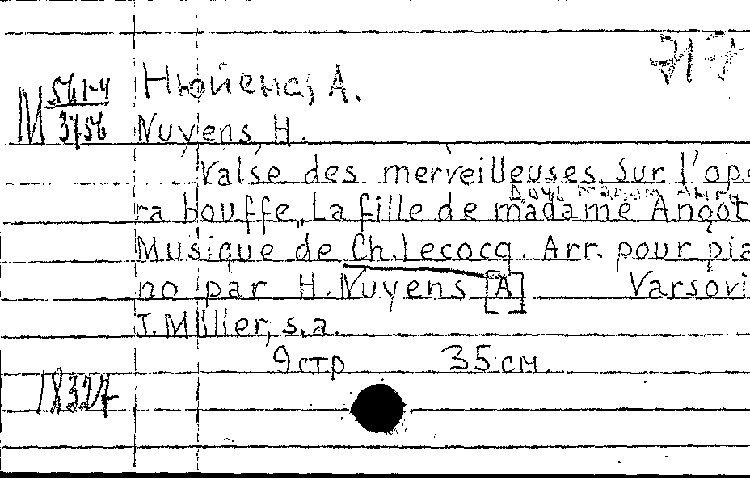 717
М 561-4
3756
Нюйенс, А.
Nuyens, H.
Valse des merveilleuses sur l'opé
ra bouffe „La fille de madame Angot
Musique de Ch. Lecocq. Arr. pour pia
no par H. Nuyens [A] Varsovi
J. Müller, s.a.
9 стр 35 см.
18327